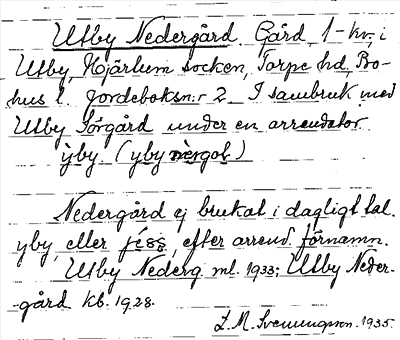 Utby Nedergård. Gård, 1-kv. i
Utby, Hjärtum socken, Torpe hd, Bo-
hus l. Jordeboksn:r 2. I sambruk med
Utby Sörgård under en arrendator.
ỳby (yby nèrgoḷ)
Nedergård ej brukat i dagligt tal.
yby eller jéss, efter arrend. förnamn.
Utby Nederg. ml. 1933; Utby Neder-
-gård kb. 1928.
L. M. Svenungsson. 1935.